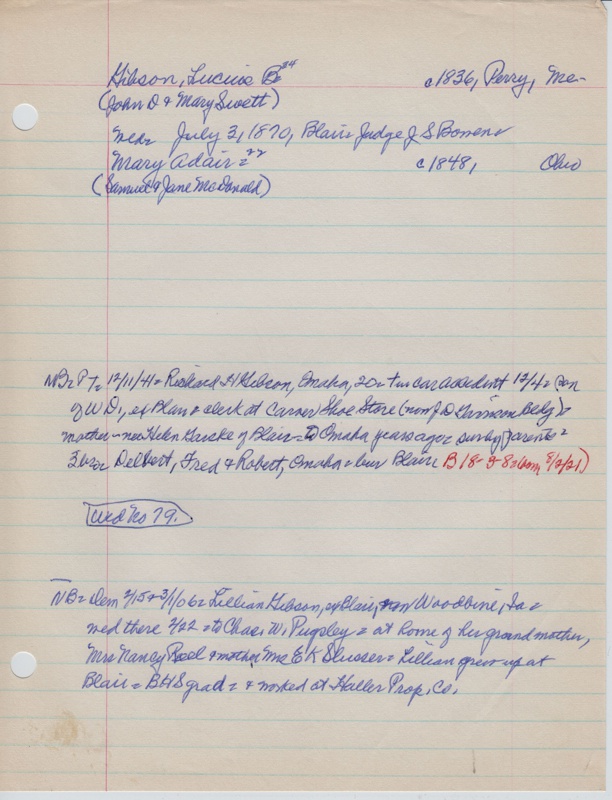 Gibson, Lucius B= 24 c1836, Perry, Me-
(John D & Mary Swett)
Med= July 3, 1870, Blair= Judge J S Bowen=
Mary Adair= 22 c1848, Ohio
(Samuel & Jane McDonald)
NB= PT= 12/11/41= Richard H Gibson, Omaha, 20= in car accident 12/4= son
of W D, ex Blair & clerk at Carver Shoe Store (now J D Harrison Bldg)=
mother= nee Helen of Blair= to Omaha years ago= surv by parents=
3 bros= Delbert, Fred & Robert, Omaha= bur Blair B 18-3-8= born 8/2/21)
Wed No 79.
NB= Dem 2/15 & 3/1/06= Lillian Gibson, ex Blair, now Woodbine, Ia=
wed there 2/22= to Chas. W. Pugsley= at home of her grandmother,
Mrs Nancy Reel & mother Mrs E K Slusser= Lillian grew up at
Blair= BHS grad= & worked at Haller Prop. Co.